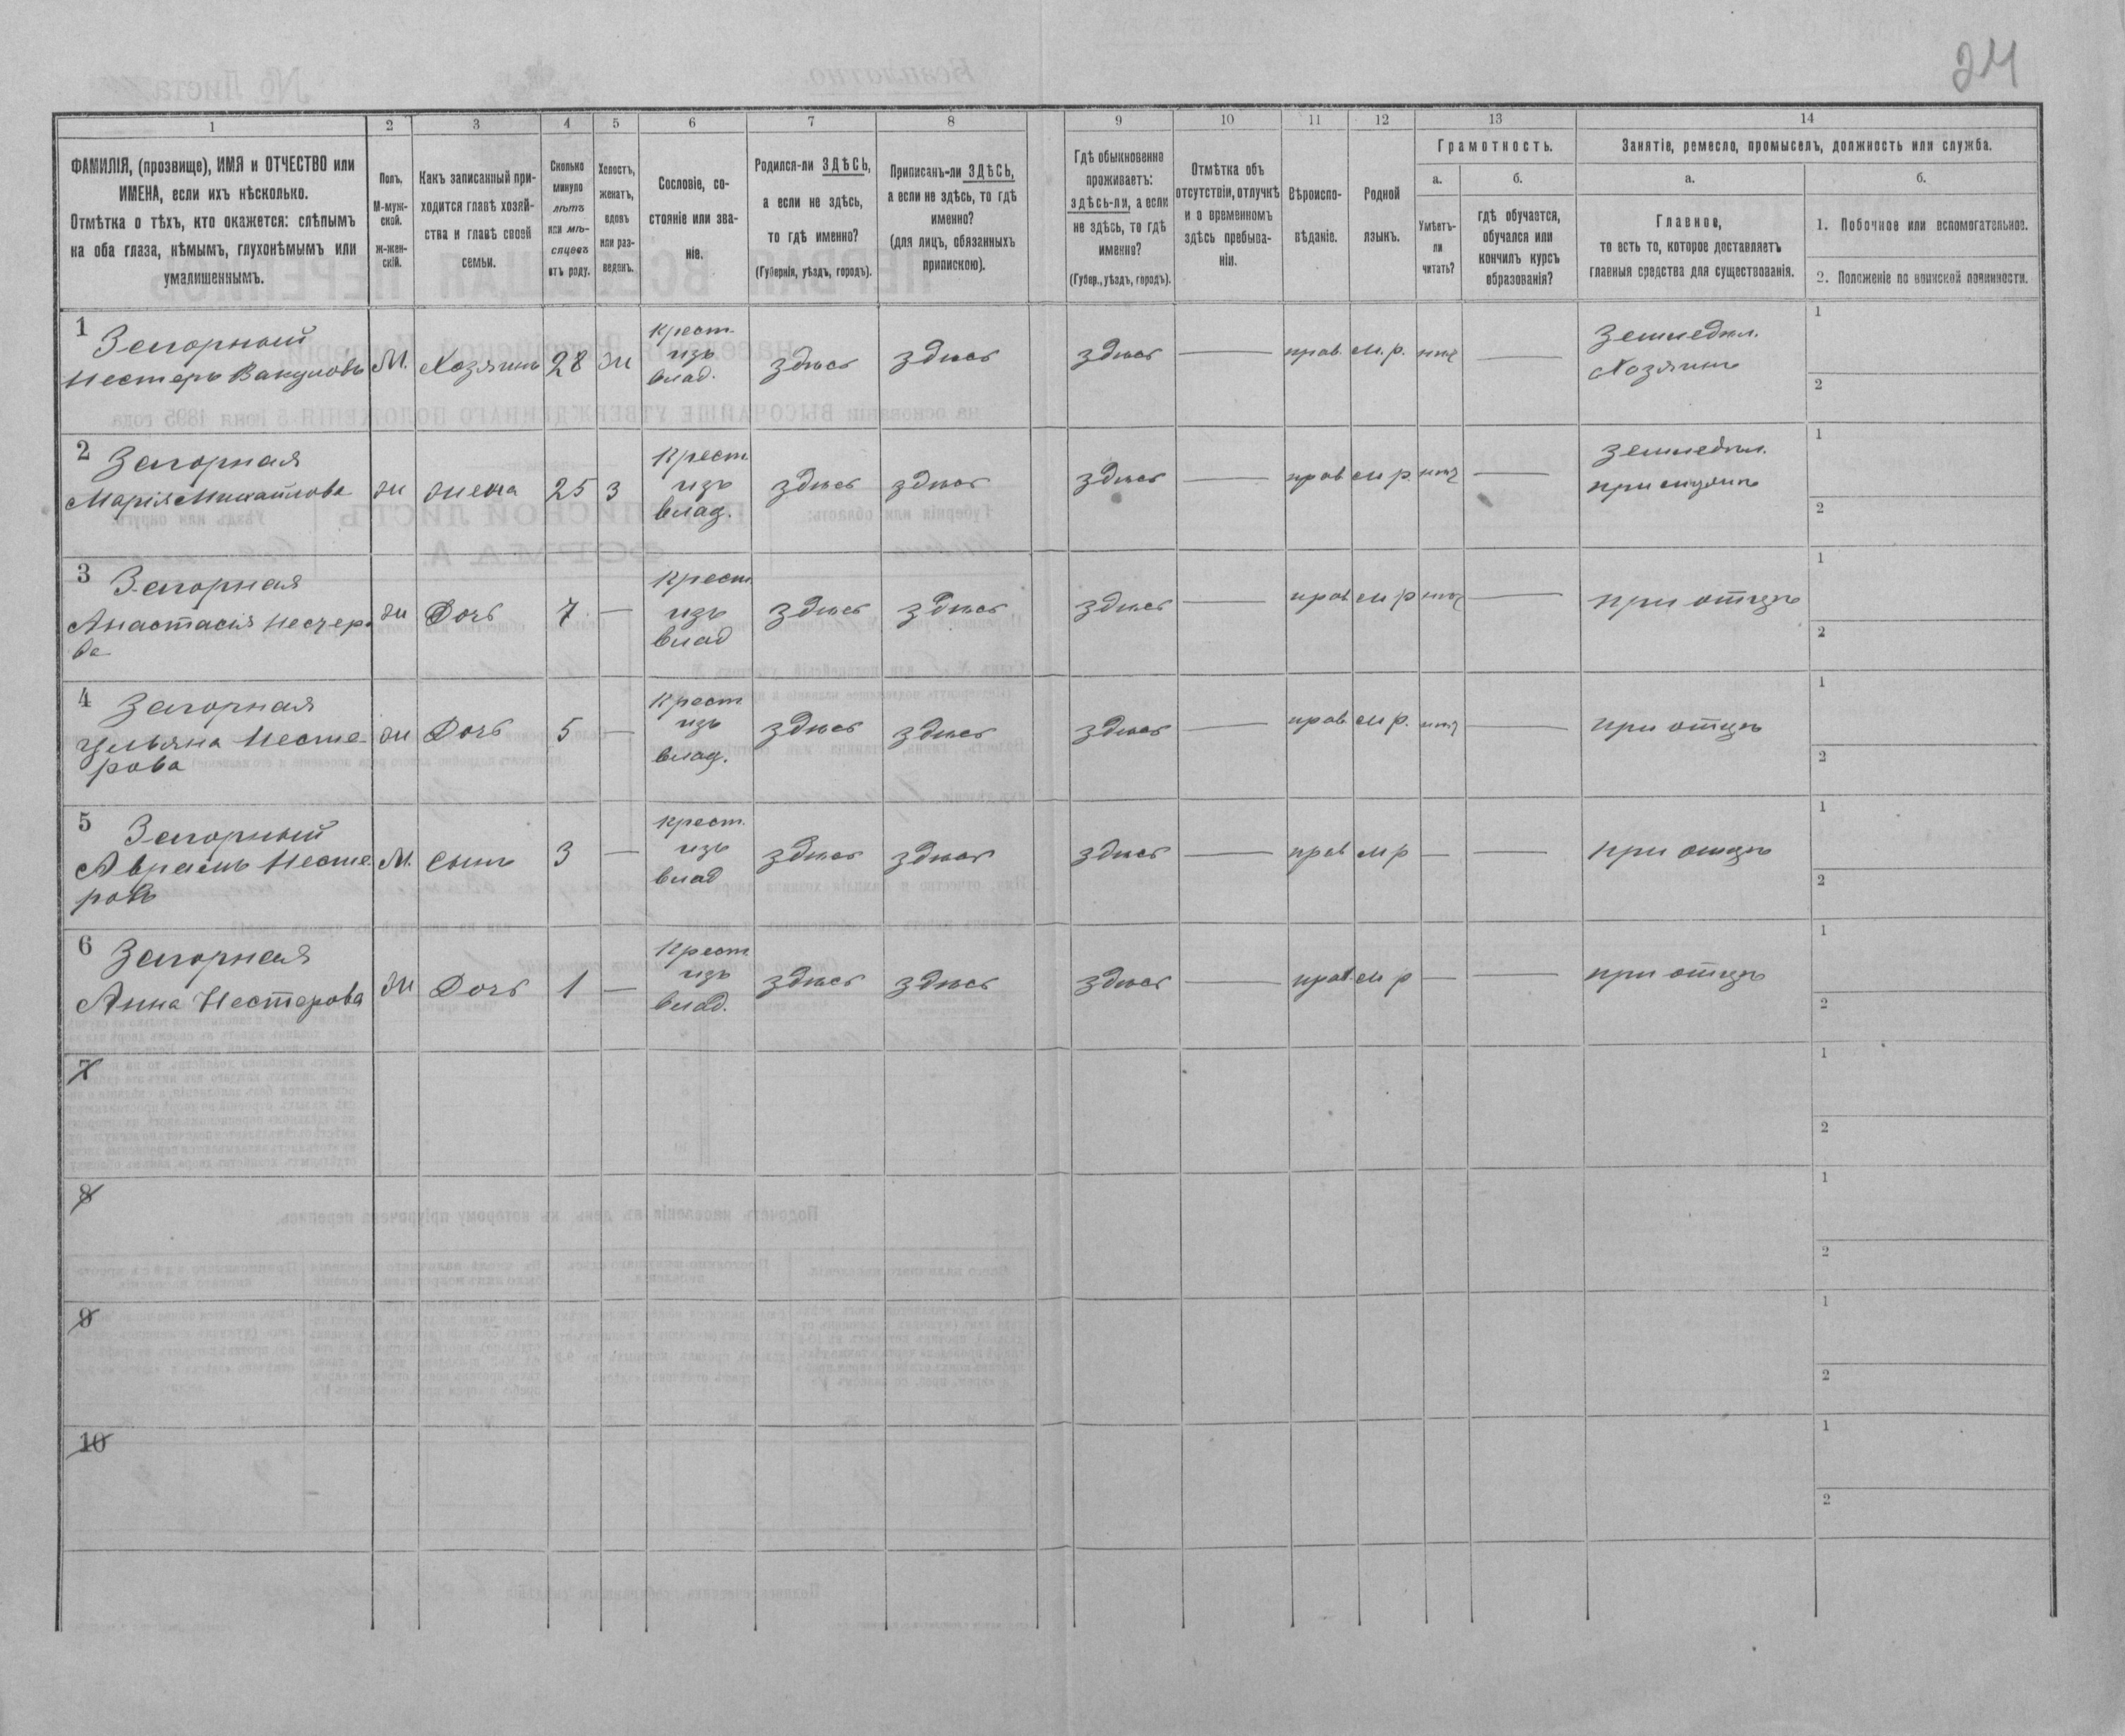 24
1 2 3 4 5 6 7 8 9 10 11 12 13 14
ФАМИЛІЯ, (прозвище), ИМЯ и ОТЧЕСТВО или
ИМЕНА, если ихъ нѣсколько.
Отмѣтка о тѣхъ, кто окажется: слѣпымъ
на оба глаза, нѣмымъ, глухонѣмымъ или
умалишеннымъ.
Полъ.
М-муж-
ской.
Ж-жен-
скій.
Какъ записанный при-
ходится главѣ хозяй-
ства и главѣ своей
семьи.
Сколько
минуло
лѣтъ
или мѣ-
сяцевъ
отъ роду.
Холостъ,
женатъ,
вдовъ
или раз-
веденъ.
Сословіе, со-
стояніе или зва-
ніе.
Родился-ли ЗДѢСЬ,
а если не здѣсь,
то гдѣ именно?
(Губернія, уѣздъ, городъ).
Приписанъ-ли ЗДѢСЬ,
а если не здѣсь, то гдѣ
именно?
(для лицъ, обязанныхъ
припискою).
Гдѣ обыкновенно
проживаетъ:
здѣсь-ли, а если
не здѣсь, то гдѣ
именно?
(Губер., уѣздъ, городъ).
Отмѣтка объ
отсутствіи, отлучкѣ
и о временномъ
здѣсь пребыва-
ніи.
Вѣроиспо-
вѣданіе.
Родной
языкъ.
Грамотность.
а.
Умѣетъ-
ли
читать?
б.
гдѣ обучается,
обучался или
кончилъ курсъ
образованія?
Занятіе, ремесло, промыселъ, должность или служба.
а.
Главное,
то есть то, которое доставляетъ
главныя средства для существованія.
б.
1. Побочное или вспомогательное.
2. Положеніе по воинской повинности.
1 Загорный
Нестеръ Вакуловъ М. Хозяинъ 28 ж
крест.
изъ
влад.
здѣсь здѣсь здѣсь — прав. м.р. —
Земледѣл.
Хозяинъ
1
2
2 Загорная
Марія Михайлова ж жена 25 з
крест.
изъ
влад.
здѣсь здѣсь здѣсь — прав м р. —
Земледѣл.
при мужѣ
1
2
3 Загорная
Анастасія
ва
ж Дочь 7 —
крест.
изъ
влад
здѣсь здѣсь здѣсь — прав м р —
при отцѣ
1
2
4 Загорная
Ульяна Несте-
рова
ж Дочь 5 —
крест
изъ
влад.
здѣсь здѣсь здѣсь — прав. м р. —
при отцѣ
1
2
5 Загорный
Аврамъ Несте-
ровъ
М. сынъ 3 —
крест.
изъ
влад
здѣсь здѣсь здѣсь — прав м р — —
при отцѣ
1
2
6 Загорная
Анна Нестерова ж Дочь 1 —
крест
изъ
влад.
здѣсь здѣсь здѣсь — прав. м р — —
при отцѣ
1
2
7
1
2
8
1
2
9
1
2
10
1
2